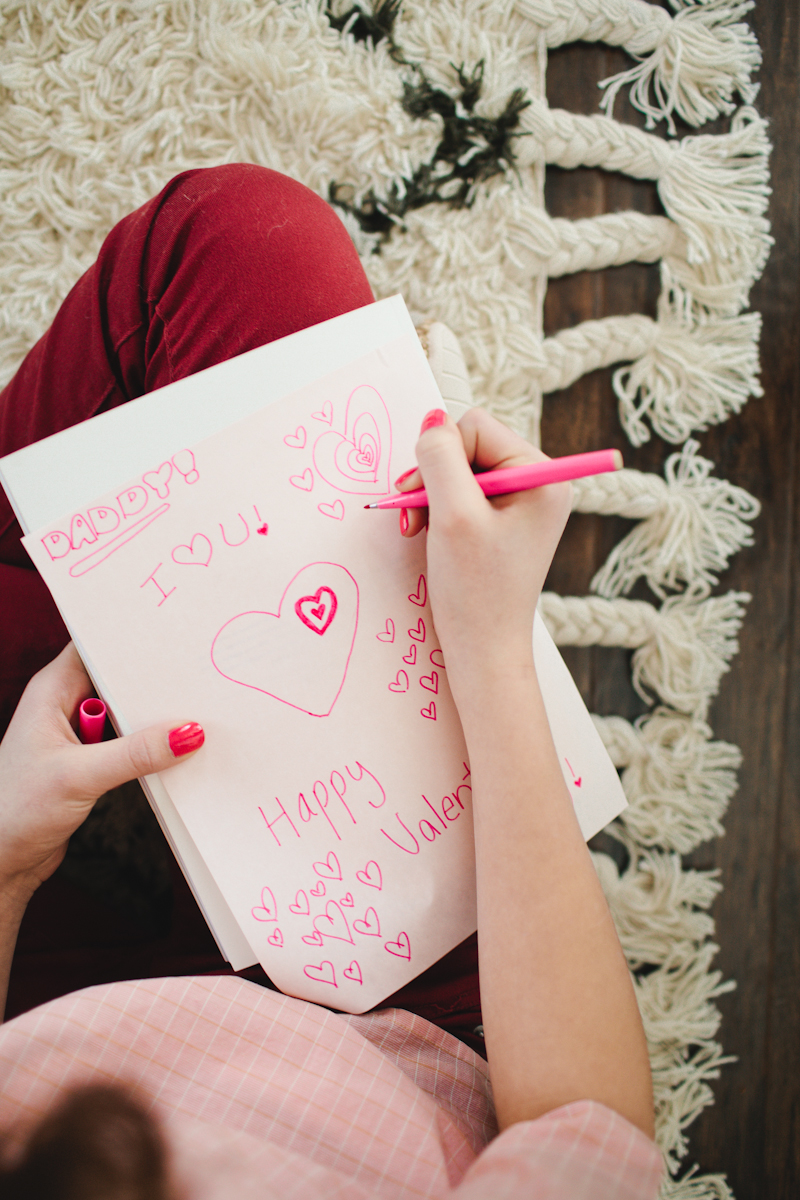 DADDY!
I ♡ U!
Happy
Valent